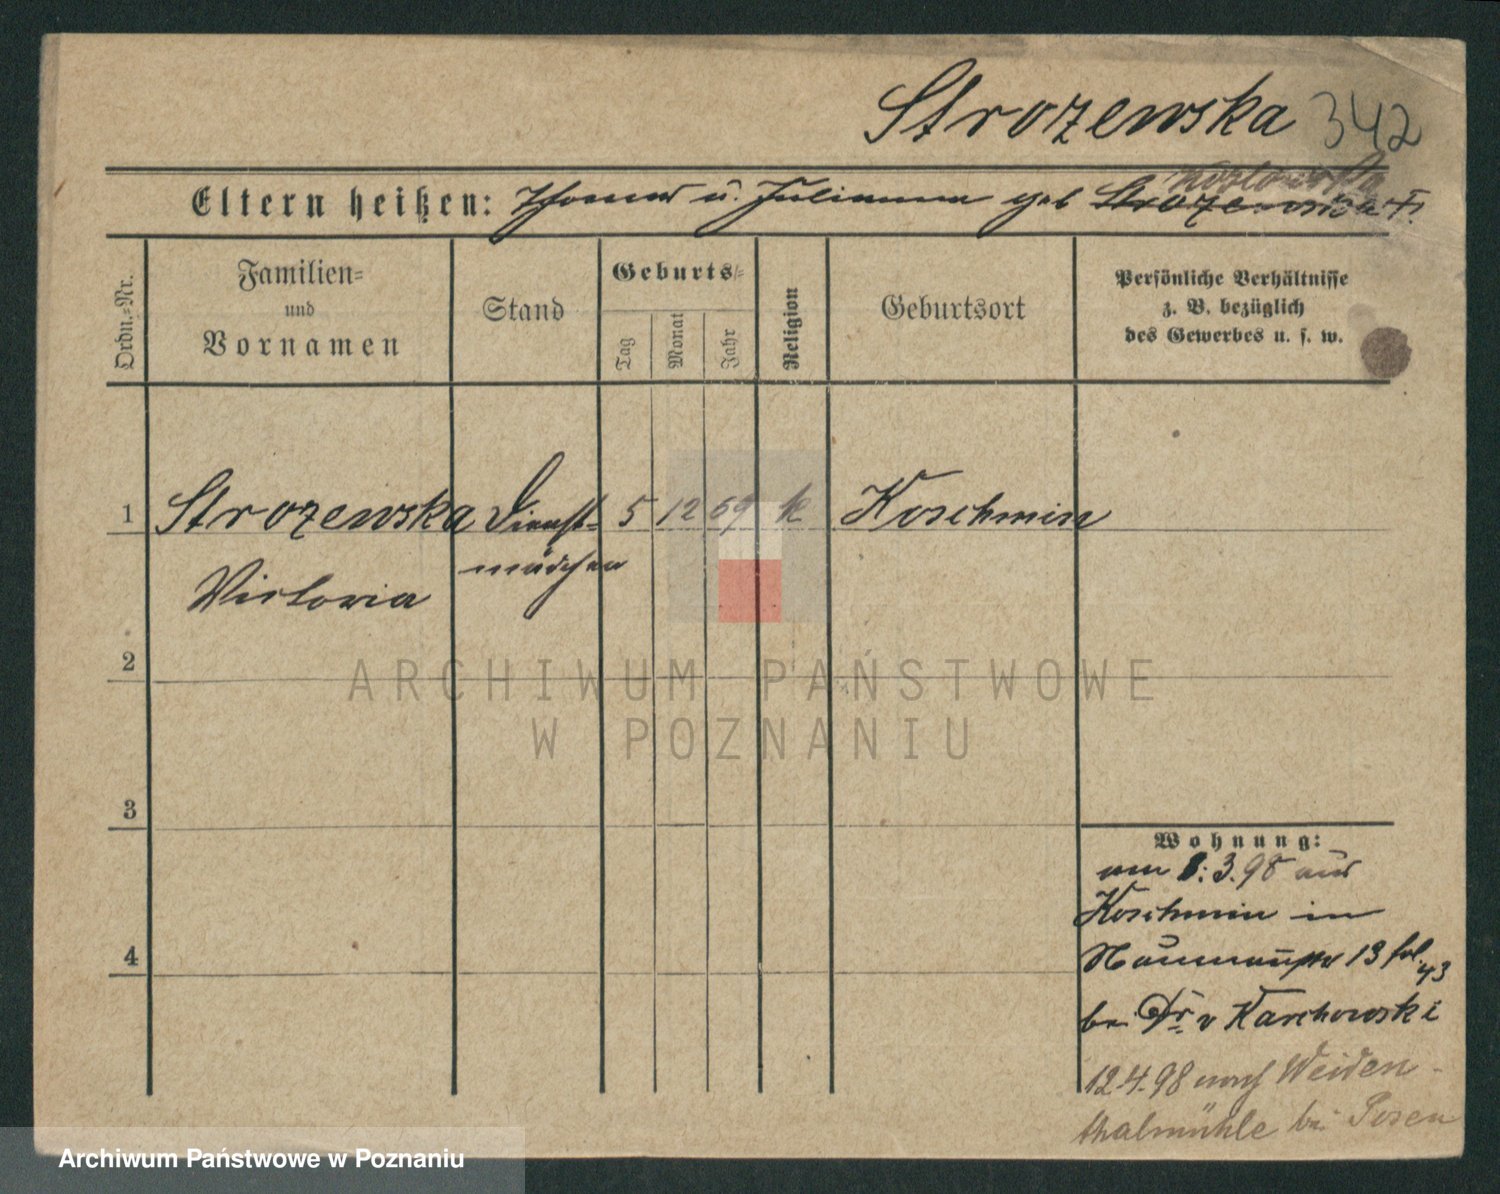 Strozewska 342
Kozlowska
Eltern heißen: Thomas u. Julianna geb Strozewska †.
Ordn.=Nr.
Familien=
und
Vornamen
Stand
Geburts=
Tag
Monat
Jahr
Religion
Geburtsort
Persönliche Verhältnisse
z. B. bezüglich
des Gewerbes u. s. w.
1 Strozewska Dienst- 5 12 69 k Koschmin
mädchen
Victoria
2
ARCHIWUM PAŃSTWOWE
W POZNANIU
3
Wohnung:
am 8.3.98 aus
Koschmin in
Naumannstr 13 fol. 43
4
bei Dr. v Karchowski
12.4.98 nach Weiden-
thalmühle bei Posen
Archiwum Państwowe w Poznaniu